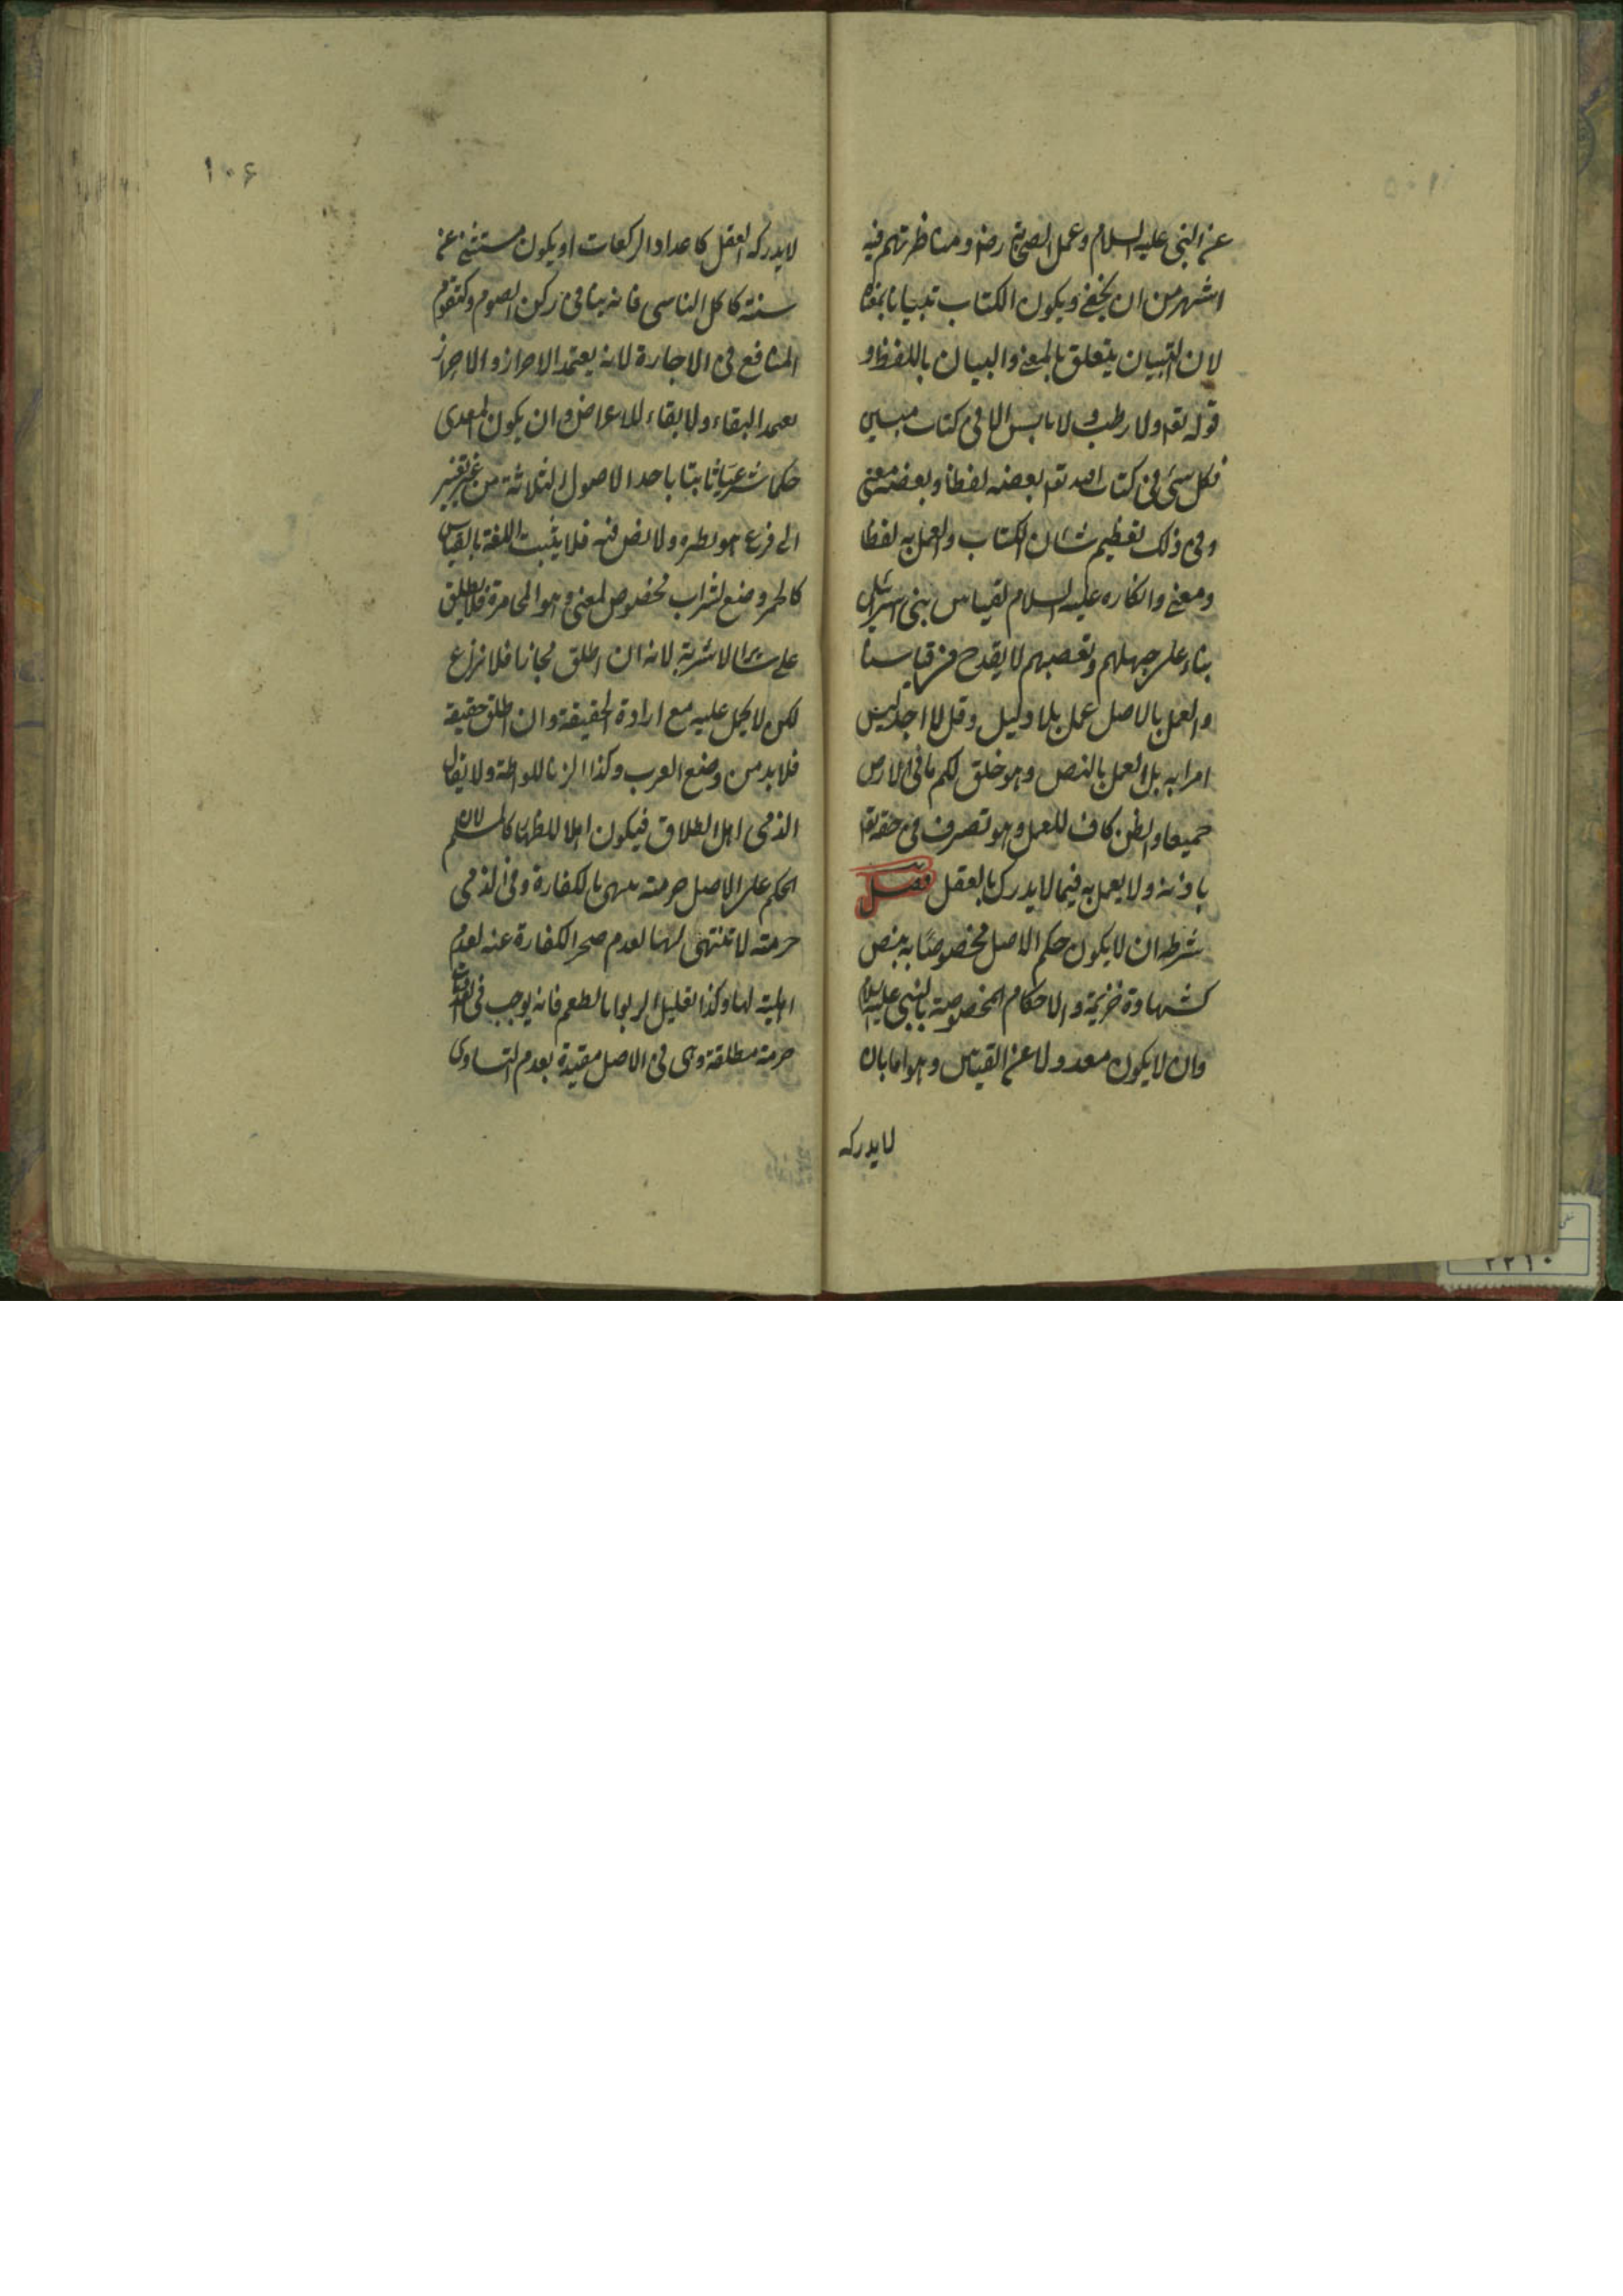 عن النبى عليه السلام وعمل الصحابة رضه ومناظرتهم فيه
اشهر من ان يخفى ويكون الكتاب تبيانا بمعناه
لان التبيان يتعلق بالمعنى والبيان باللفظ و
قوله تعه ولا رطب ولا يابس الا فى كتاب مبين
فكل شئ فى كتاب الله تعه بعضه لفظا وبعضه معنى
وفى ذلك تعظيم شان الكتاب والعمل به لفظا
ومعنى وانكاره عليه السلام لقياس بنى اسرائيل
بناء على جهلهم وتعصبهم لا يقدح فى قياسنا
والعمل بالاصل عمل بلا دليل وقل لا اجد ليس
امرا به بل العمل بالنص وهو خلق لكم ما فى الارض
جميعا والظن كاف للعمل وهو تصرف فى حقه تعه
باذنه ولا يعمل به فيما لا يدرك بالعقل فصل
شرطه ان لا يكون حكم الاصل مخصوصًا به بنص
كشهادة خزيمة والاحكام المخصوصة بالنبى عليه السلام
وان لا يكون معدولا عن القياس وهو اما بان
لا يدركه
١٠۶
لا يدركه العقل كاعداد الركعات او يكون مستثنى عن
سننه كاكل الناسى فانه ينافى ركن الصوم وكتقوم
المنافع فى الاجارة لانه يعتمد الاحراز والاحراز
يعتمد البقاء ولا بقاء للاعراض وان يكون المعدى
حكما شرعيًا ثابتا باحد الاصول الثلاثة من غير تغيير
الى فرع هو نظيره ولا نص فيه فلا يثبت اللغة بالقياس
كالخمر وضع لشراب مخصوص لمعنى وهو المخامرة فلا يطلق
على سائر الاشربة لانه ان اطلق مجازا فلا نزاع
لكن لا يحمل عليه مع ارادة الحقيقة وان اطلق حقيقة
فلا بد من وضع العرب وكذا الزنا للواطة ولا يقال
الذمى اهل الطلاق فيكون اهلا للظهار كالمسلم لان
الحكم على الاصل حرمته تنتهى بالكفارة وفى الذمى
حرمته لا تنتهى بها لعدم صحة الكفارة عنه لعدم
اهليته لها وكذا تعليل الربوا بالطعم فانه يوجب فى
حرمة مطلقة وهى فى الاصل مقيدة بعدم التساوى
٢٢١٠